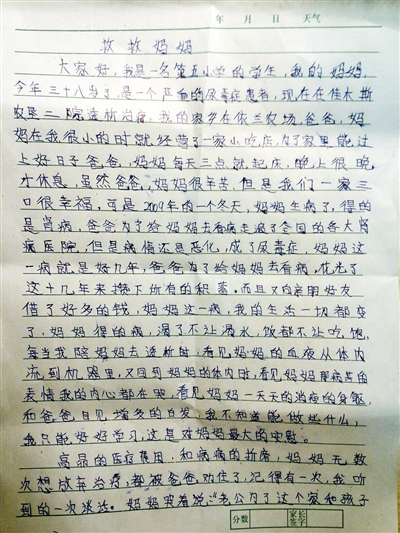 年 月 日 天气
救救妈妈
大家好,我是一名第五小学的学生,我的妈妈,
今年三十八岁了,是一个严重的尿毒症患者,现在在佳木斯
农垦二院透析治疗,我的家乡在依兰农场,爸爸,妈
妈在我很小的时就经营了一家小吃店,为了家里能过
上好日子爸爸,妈妈每天三点就起床,晚上很晚
才休息,虽然爸爸,妈妈很辛苦,但是我们一家三
口很幸福,可是2009年的一个冬天,妈妈生病了,得的
是肾病,爸爸为了给妈妈去看病走遍了全国的各大肾
病医院,但是病情还是恶化,成了尿毒症,妈妈这
一病就是好几年,爸爸为了给妈妈去看病,花光了
这十几年来攒下所有的积蓄,而且又向亲朋好友
借了好多的钱,妈妈这一病,我的生活一切都变
了,妈妈得的病,渴了不让喝水,饭都不让吃饱,
每当我陪妈妈去透析时,看见妈妈的血液从体内
流到机器里,又回到妈妈的体内时,看见妈妈那痛苦的
表情我的内心都在哭,看见妈妈一天天的消瘦的身躯
和爸爸日见增多的白发,我不知道能做些什么,
我只能好好学习,这是对妈妈最大的安慰。
高昂的医疗费用,和病痛的折磨,妈妈无数
次想放弃治疗,都被爸爸劝住了,记得有一次,我听
到的一次谈话。妈妈哭着说:"老公为了这个家和孩子
分数 家长签字